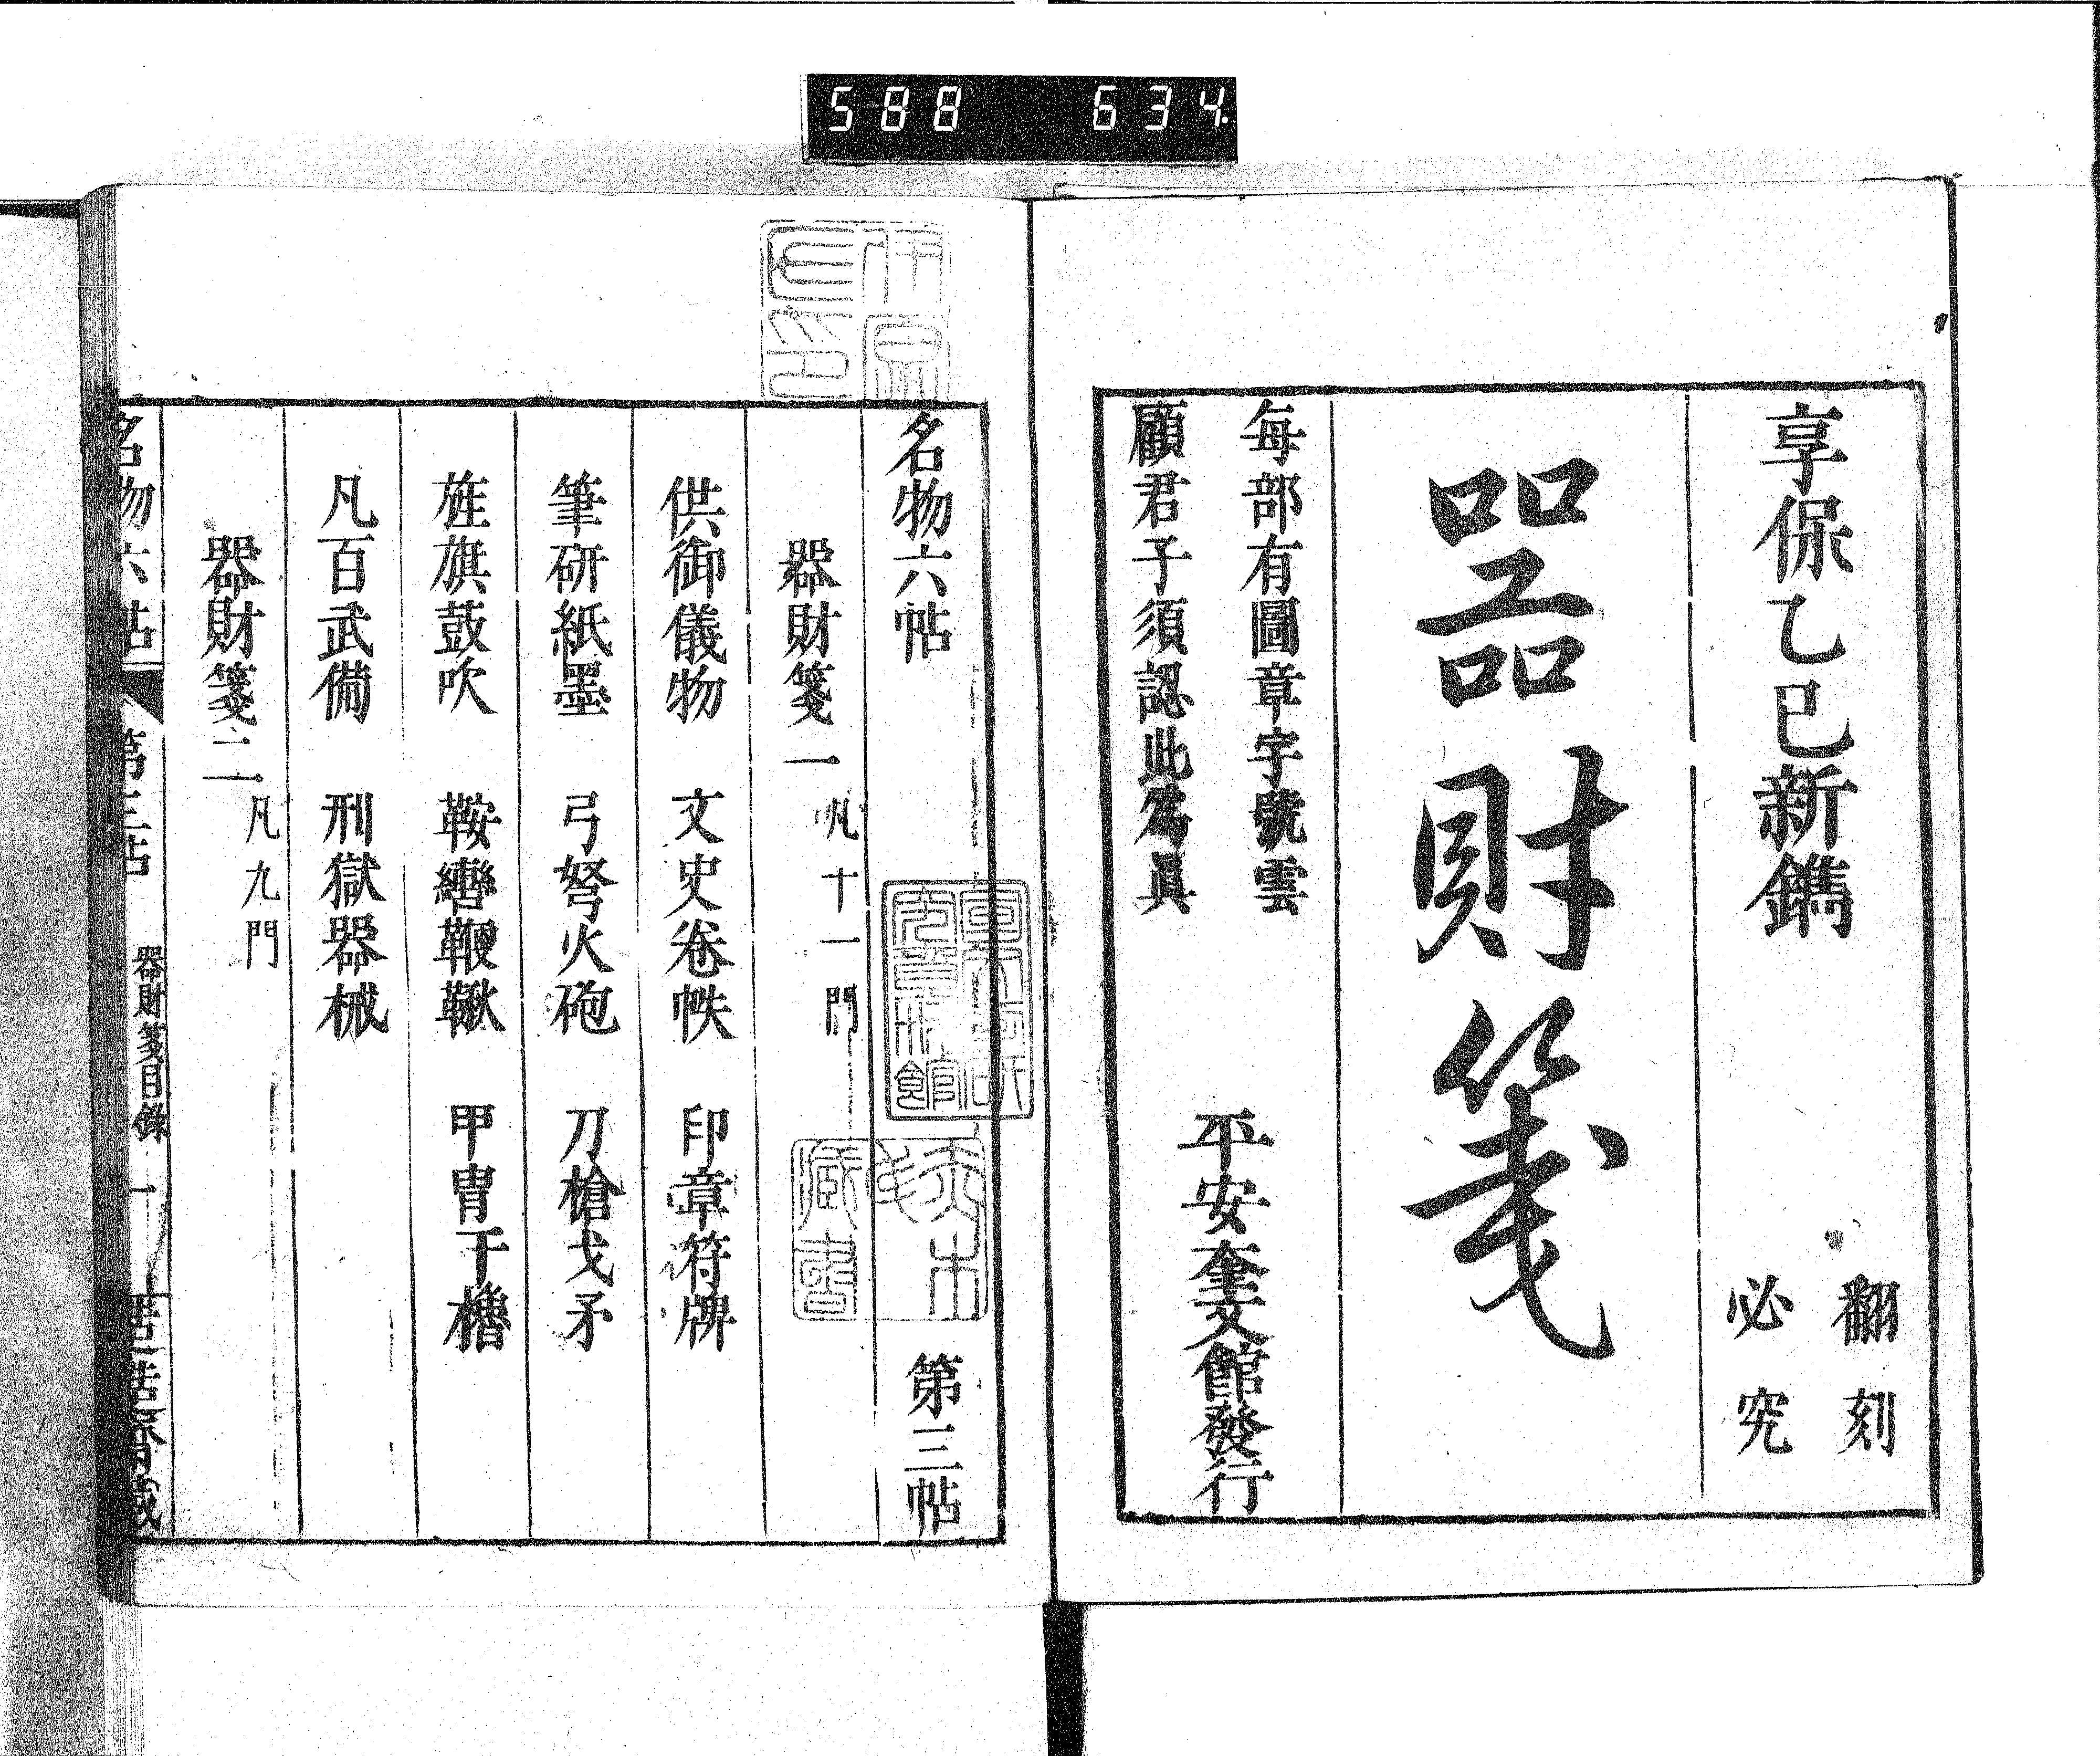 588 634
享保乙巳新鐫
翻刻
必究
器財箋
每部有圖章字號雲
顧君子須認此為眞
平安奎文館發行
名物六帖 第三帖
器財箋一 凡十一門
供御儀物 文史卷帙 印章符牌
筆硏紙墨 弓弩火砲 刀槍戈矛
旌旗鼓吹 鞍轡鞭鞦 甲冑干櫓
凡百武備 刑獄器械
器財箋二 凡九門
名物六帖 第三帖 器財箋目錄 一